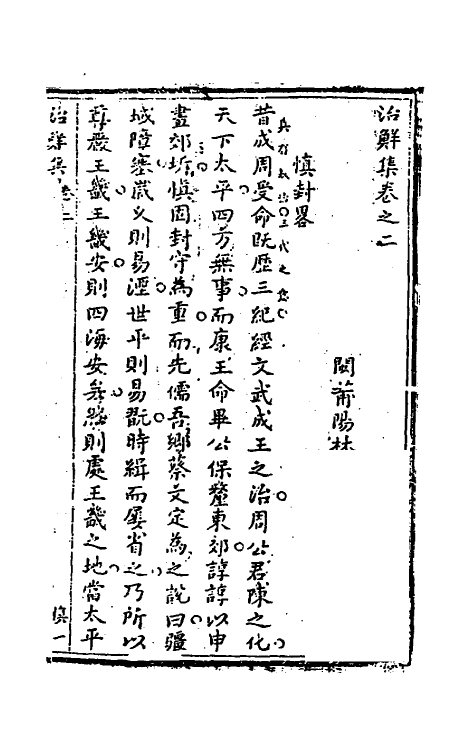 治鮮集卷之二
閩莆陽林
慎封畧
昔成周受命旣歷三紀經文武成王之治周公君陳之化
天下太平四方無事而康王命畢公保釐東郊諄諄以申
畫郊圻慎固封守為重而先儒吾鄉蔡文定為之說曰疆
域障塞歲久則易湮世平則易翫時緝而屢省之乃所以
尊嚴王畿王畿安則四海安矣然則處王畿之地當太平
治鮮集 卷二
慎一